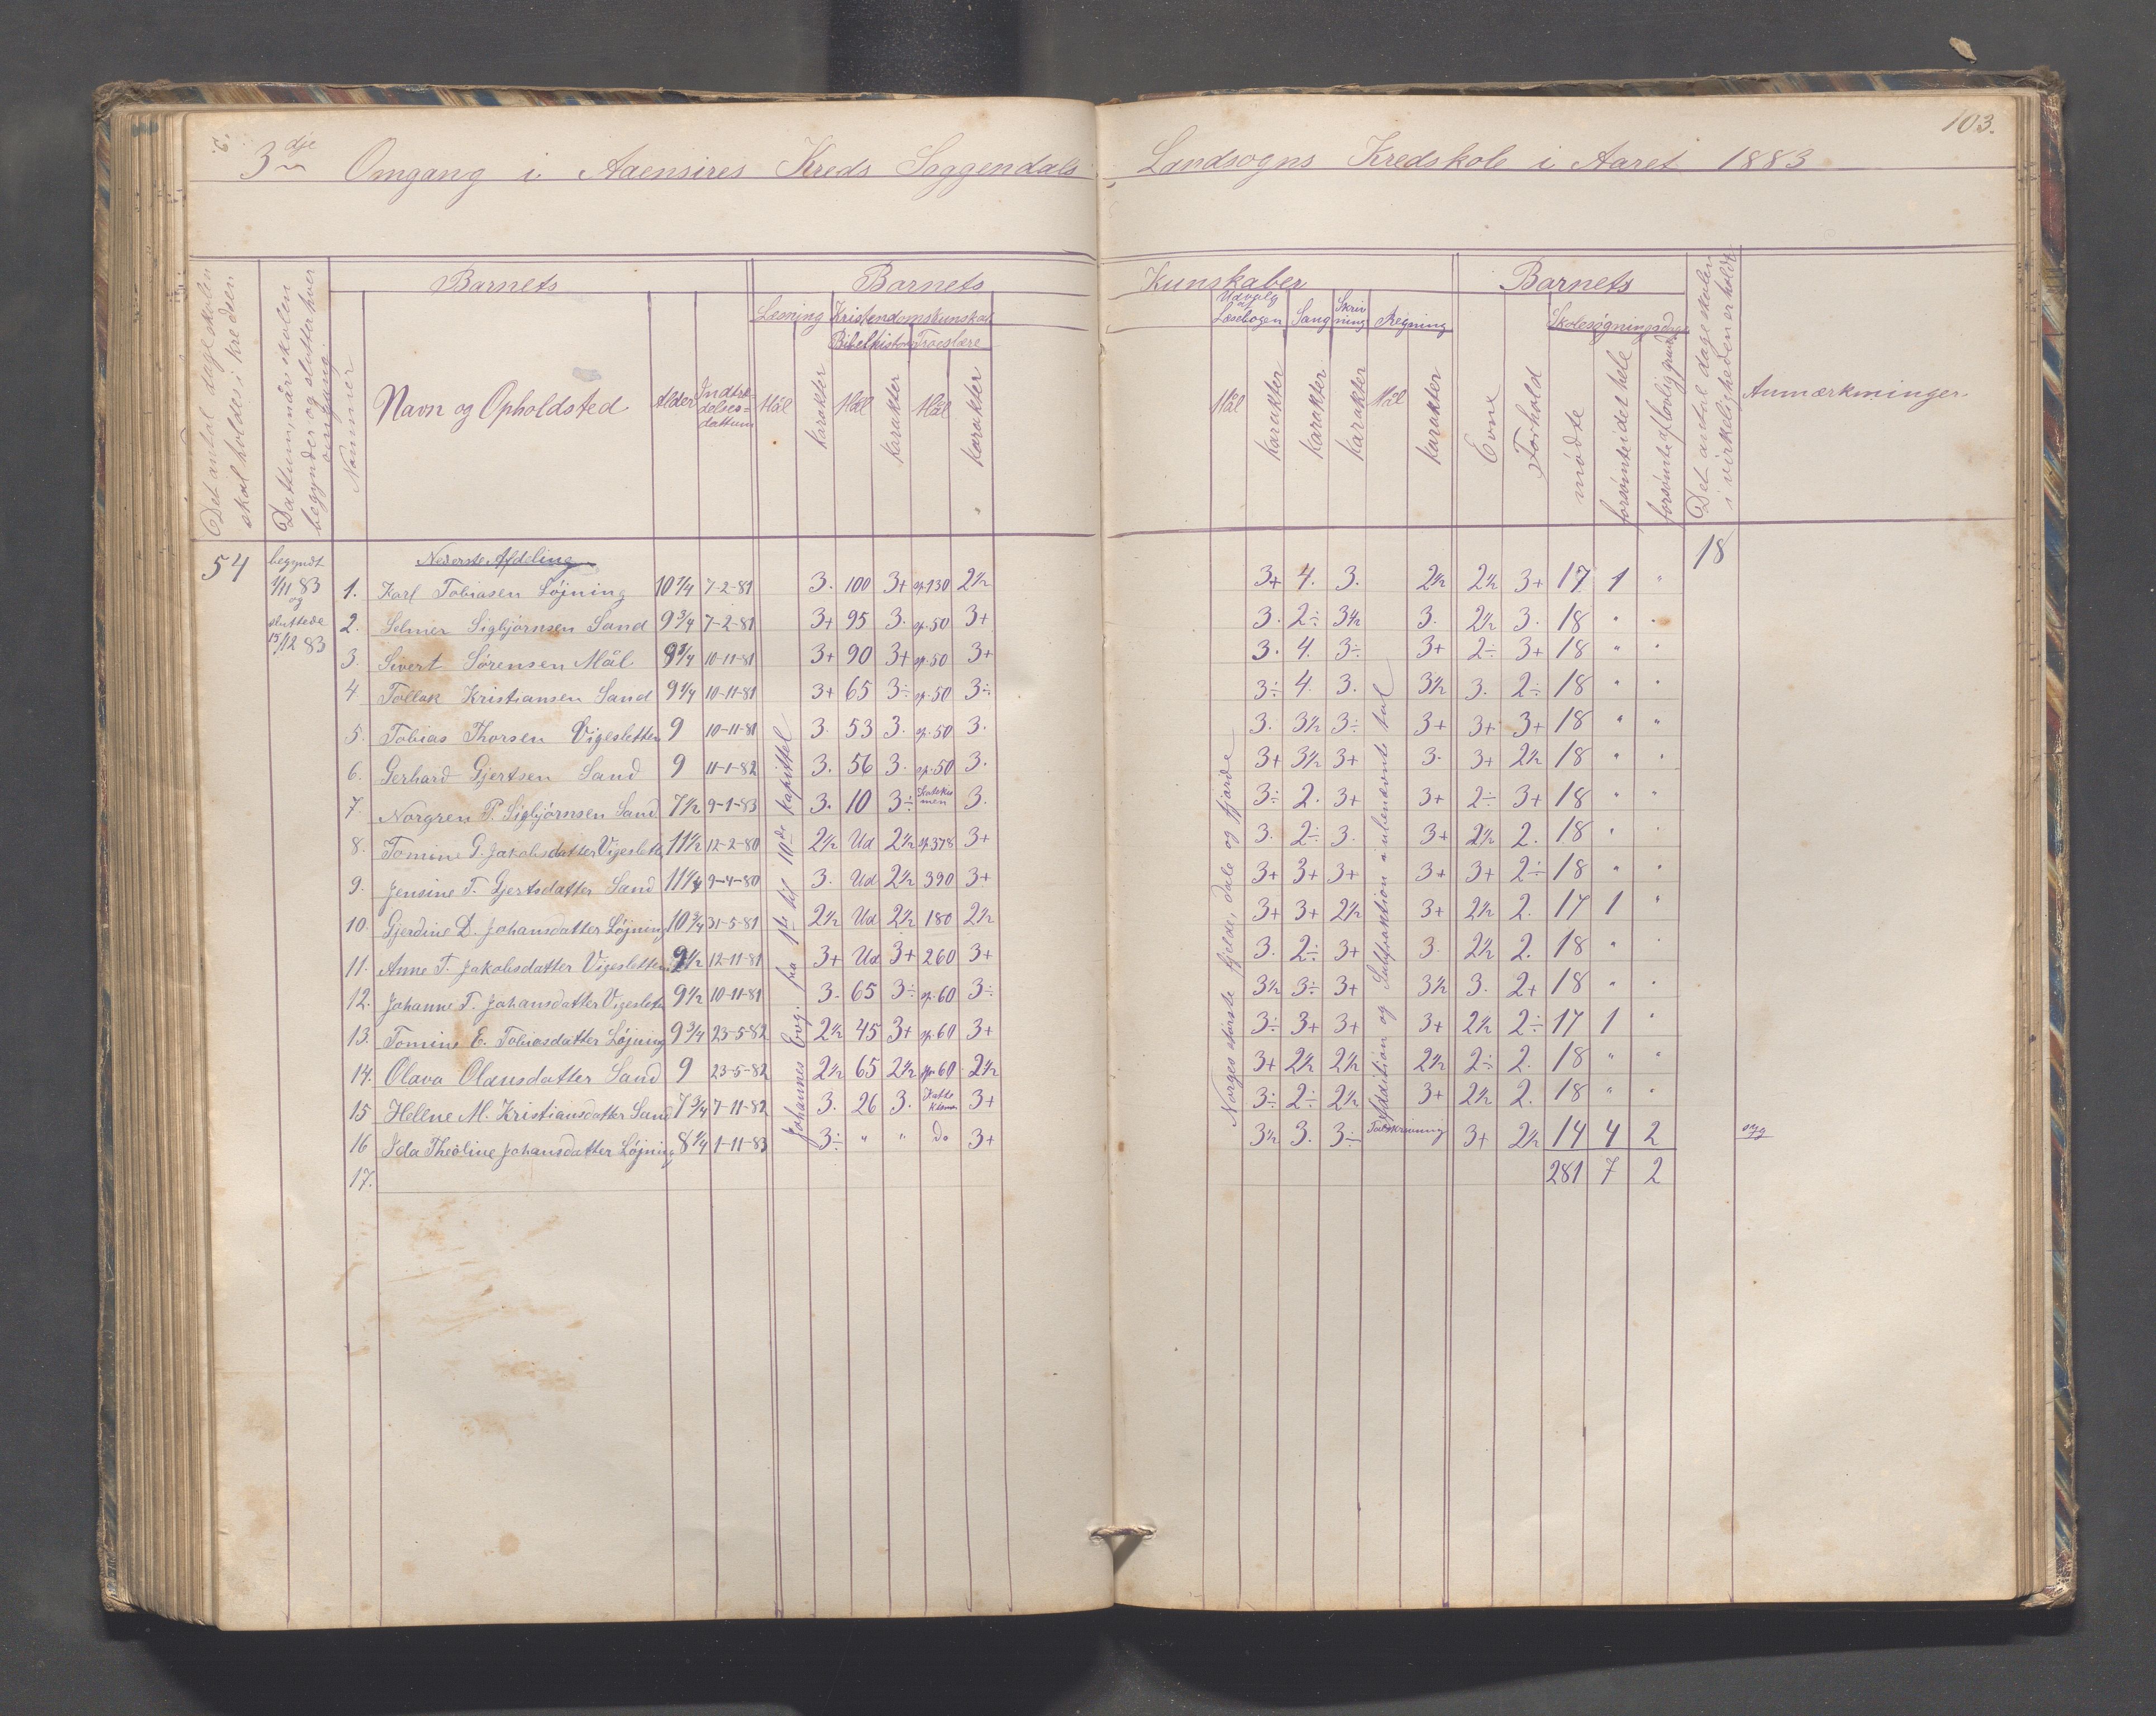 103.
3dje Omgang i Aaensires Kreds Soggendals Landsogns Kredskole i Aaret 1883
Det antal dage skolen skal holdes i kredsen
Dattum, når skolen begynder og slutter hver omgang.
Nummer
Barnets
Navn og Opholdsted
Alder
Indtrædelses=dattum
Barnets Kunskaber
Læsning
Mål
Karakter
Kristendomskunskab
Bibelhistorie
Mål
Karakter
Troeslære
Mål
Karakter
Udvalg af Læsebogen
Mål
Karakter
Sang
Karakter
Skrivning
Karakter
Regning
Mål
Karakter
Barnets
Evne
Forhold
Skolesøgningsdage
mødte
forsømte i det hele
forsømte af lovlig grund
Det antal dage skolen i virkeligheden er holdt
Anmærkninger.
54
begyndt 1/11 83 og sluttede 15/12 83
Nederste Afdeling
18
Johannes Evg. fra 1ste til 10de kapittel
Norges største fjelde, dale og fjorde
Addition og Subtraktion i ubenævnte tal
1. Karl Tobiasen Løjning 10 3/4 7-2-81 3. 100 3+ sp.130 2½ 3+ 4. 3. 2½ 2½ 3+ 17 1 "
2. Selmer Sigbjørnsen Sand 9 3/4 7-2-81 3+ 95 3. sp.50 3+ 3. 2÷ 3½ 3. 2½ 3. 18 " "
3. Sivert Sørensen Mål 9 3/4 10-11-81 3+ 90 3+ sp.50 3+ 3. 4. 3÷ 3+ 2÷ 3+ 18 " "
4 Tollak Kristiansen Sand 9 1/4 10-11-81 3+ 65 3÷ sp.50 3÷ 3÷ 4. 3. 3½ 3. 2÷ 18 " "
5. Tobias Thorsen Vigesletten 9 10-11-81 3. 53 3. sp.50 3. 3. 3½ 3÷ 3+ 3+ 3+ 18 " "
6. Gerhard Gjertsen Sand 9 11-1-82 3. 56 3. sp.50 3. 3+ 3½ 3+ 3. 3+ 2½ 18 " "
7. Norgren P. Sigbjørnsen Sand 7½ 9-1-83 3. 10 3÷ 3. 3÷ 2. 3+ 3+ 2÷ 3+ 18 " "
8. Tomine G. Jakobsdatter Vigeslet 11½ 12-2-80 2½ Ud 2½ sp.378 3+ 3. 2÷ 3. 3+ 2½ 2. 18 " "
9. Jensine T. Gjertsdatter Sand 11 1/4 9-4-80 3. Ud 2½ 390 3+ 3+ 3+ 3+ 3+ 3+ 2÷ 18 " "
10. Gjerdine D. Johansdatter Løjning 10 3/4 31-5-81 2½ Ud 2½ 180 2½ 3+ 3+ 2½ 3+ 2½ 2. 17 1 "
11. Anne T. Jakobsdatter Vigesletten 9½ 12-11-81 3+ Ud 3+ 260 3+ 3. 2÷ 3+ 3. 2½ 2. 18 " "
12. Johanne T. Johansdatter Vigeslet 9½ 10-11-81 3. 65 3÷ sp.60 3÷ 3½ 3÷ 3+ 3½ 3. 2+ 18 " "
13. Tomine E. Tobiasdatter Løjning 9 3/4 23-5-82 2½ 45 3+ sp.60 3+ 3÷ 3+ 3+ 3+ 2½ 2÷ 17 1 "
14. Olava Olausdatter Sand 9 23-5-82 2½ 65 2½ sp.60 2½ 3+ 2½ 2½ 2½ 2÷ 2. 18 " "
15 Hellne M. Kristiansdatter Sand 7 3/4 7-11-82 3. 26 3. 3+ 3÷ 2÷ 2½ 3+ 2½ 2. 18 " "
16 Ida Theoline Johansdatter Løjning 8 1/4 1-11-83 3÷ " " do 3+ 3½ 3. 3÷ Talskrivning 3+ 2½ 14 4 2 syg
17. 281 7 2